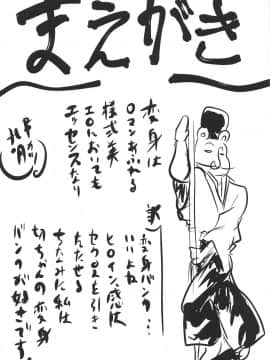 まえがき
変身は
ロマンあふれる
様式美
エロにおいても
エッセンスたり
変身バンク…
いいよね
ヒロイン感は
セクロスを引き
たたせる
ちなみに私は
切ちゃんの変身
バンクが好きです。